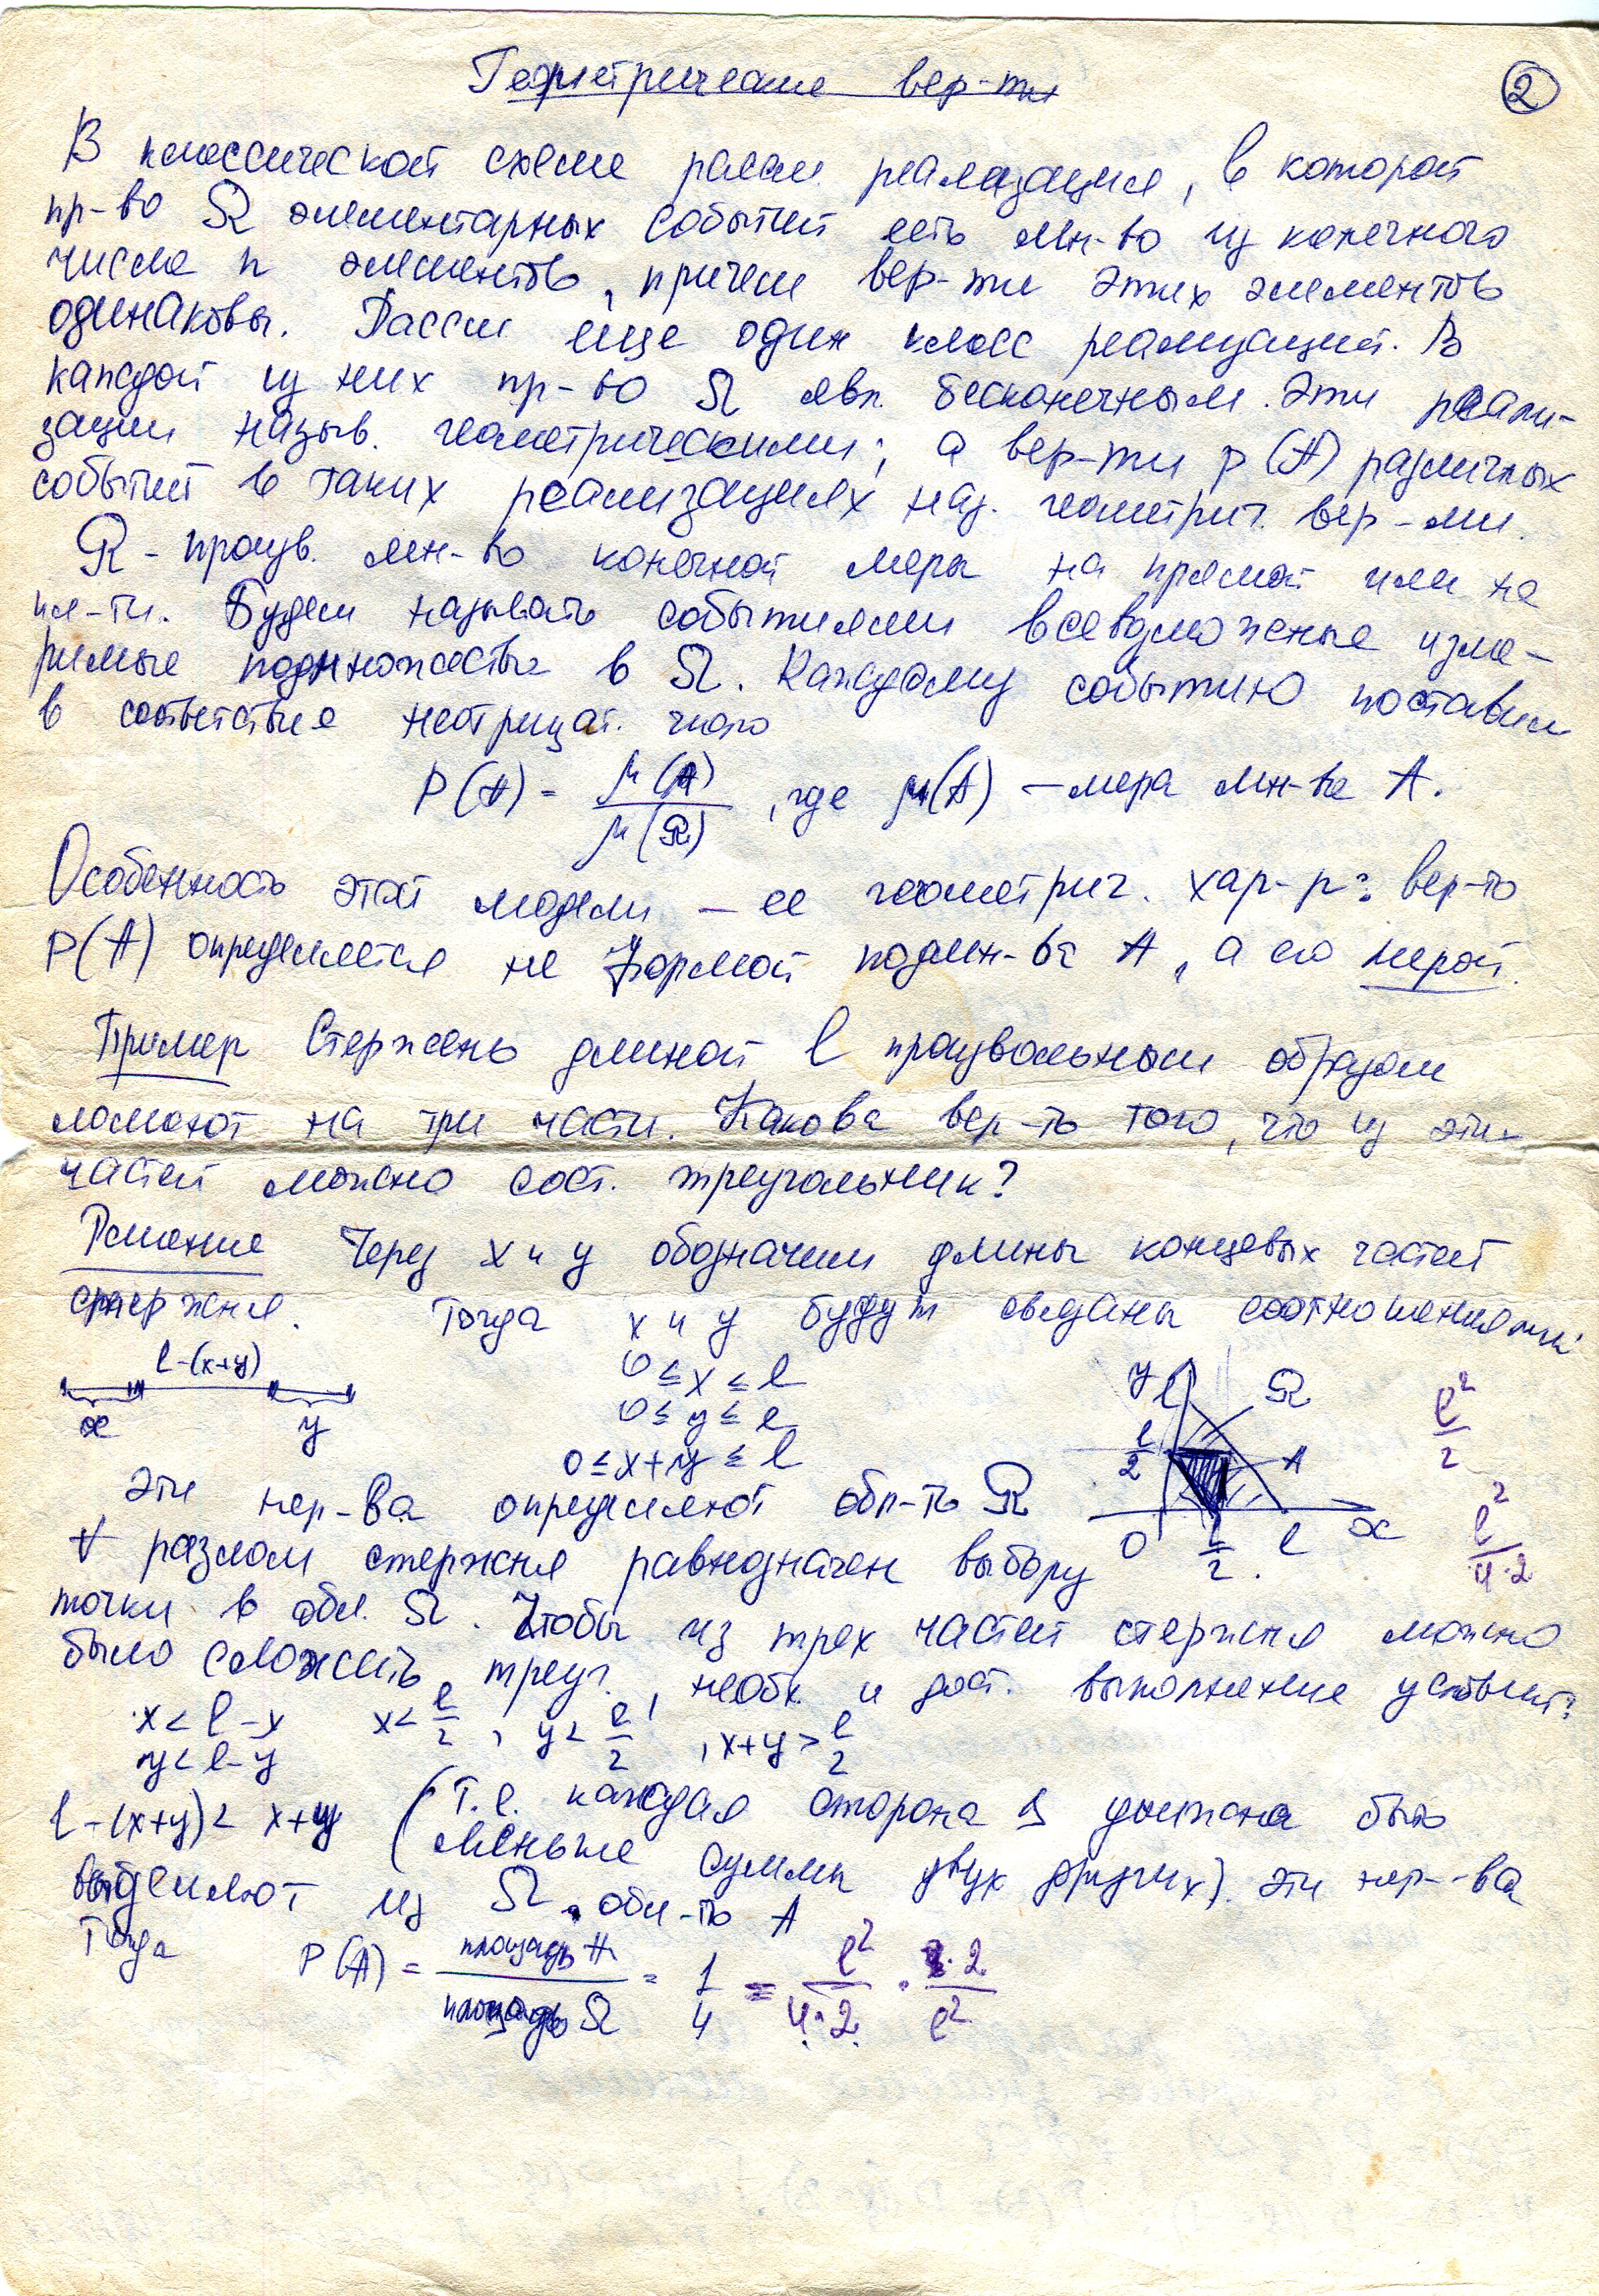 Геометрические вер-ти
2
В классической схеме рассм. реализация, в которой
пр-во Ω элементарных событий есть мн-во из конечного
числа n элементов, причем вер-ти этих элементов
одинаковы. Рассм еще один класс реализаций. В
каждой из них пр-во Ω явл. бесконечным. Эти реали-
зации назыв. геометрическими; а вер-ти p(A) различных
событий в таких реализациях наз. геометрич. вер-ми.
Ω - произв. мн-во конечной меры на прямой или на
пл-ти. Будем называть событиями всевозможные изме-
римые подмножества в Ω. Каждому событию поставим
в соответствие неотрицат. число
P(A) = μ(A)/μ(Ω), где μ(A) — мера мн-ва A.
Особенность этой модели — ее геометрич. хар-р: вер-ть
P(A) определяется не формой подмн-ва A, а его мерой.
Пример Стержень длиной l произвольным образом
ломают на три части. Какова вер-ть того, что из этих
частей можно сост. треугольник?
Решение Через x и y обозначим длины концевых частей
стержня. Тогда x и y будут связаны соотношениями:
l-(x+y)
x y
0 ≤ x ≤ l
0 ≤ y ≤ l
0 ≤ x+y ≤ l
y l Ω
l/2 A
0 l/2 l x
l²/2
l²/4·2
Эти нер-ва определяют обл-ть Ω
∀ разлом стержня равнозначен выбору
точки в обл. Ω. Чтобы из трех частей стержня можно
было сложить треуг., необх. и дост. выполнение условий:
x < l-x x < l/2, y < l/2, x+y > l/2
y < l-y
l-(x+y) < x+y (т.е. каждая сторона Δ должна быть
меньше суммы двух других). Эти нер-ва
выделяют из Ω обл-ть A
Тогда P(A) = площадь A/площадь Ω = 1/4 = l²/4·2 · 2/l²